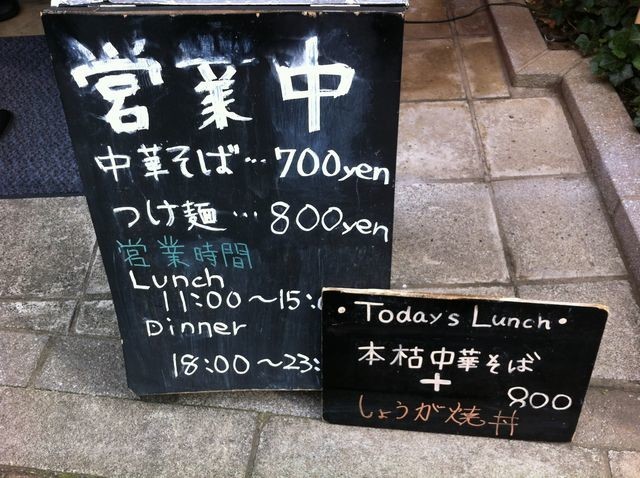 営業中
中華そば…700yen
つけ麺…800yen
営業時間
Lunch
11:00～15:0
Dinner
18:00～23:
・Today's Lunch・
本枯中華そば
+
800
しょうが焼丼